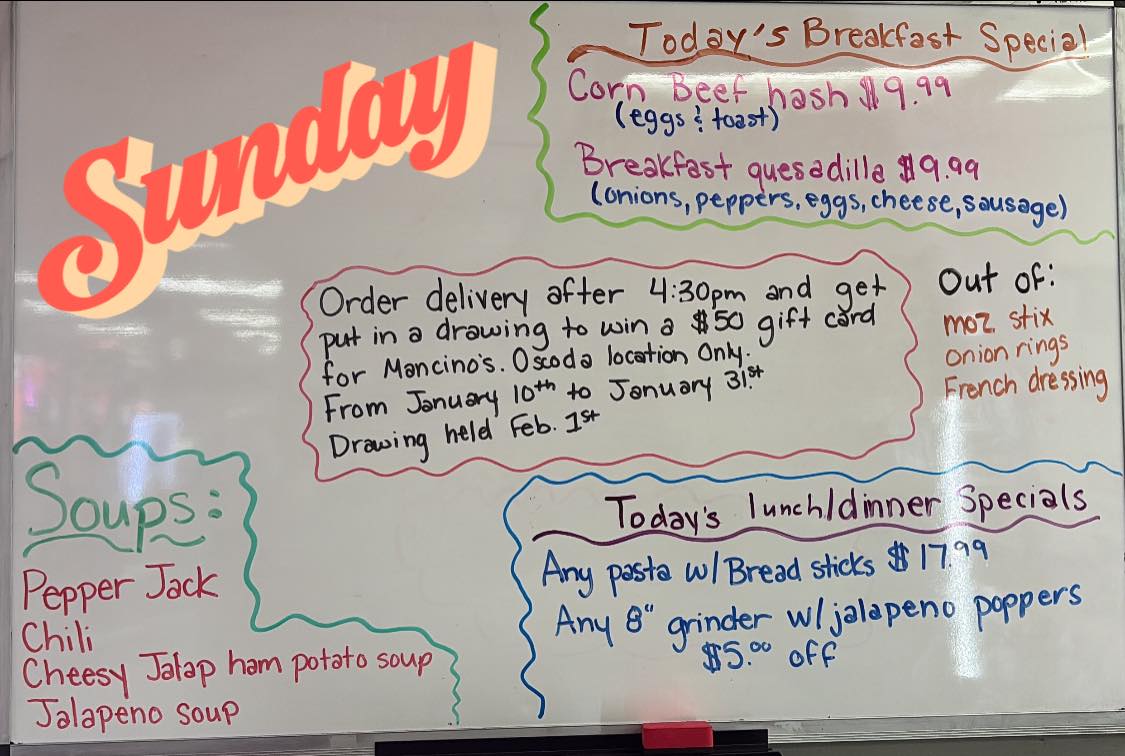 Sunday
Today's Breakfast Special
Corn Beef hash $9.99
(eggs & toast)
Breakfast quesadilla $9.99
(onions, peppers, eggs, cheese, sausage)
Order delivery after 4:30pm and get
put in a drawing to win a $50 gift card
for Mancino's. Oscoda location Only.
From January 10th to January 31st
Drawing held Feb. 1st
Out of:
moz stix
Onion rings
French dressing
Soups:
Pepper Jack
Chili
Cheesy Jalap ham potato soup
Jalapeno soup
Today's lunch/dinner Specials
Any pasta w/ Bread sticks $17.99
Any 8" grinder w/ jalapeno poppers
$5.00 off